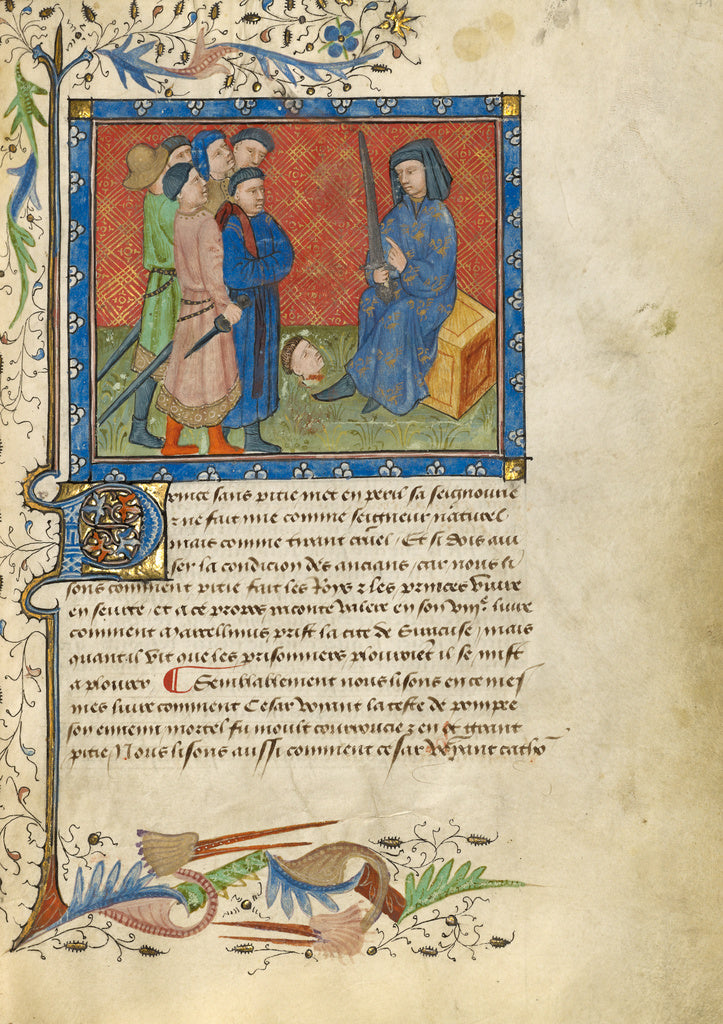 Prince sans pitie met en peril sa seignourie
z ne fait mie comme seigneur naturel
mais comme tirant cruel / Et si dois aui
ser la condicion des ancians / car nous li
sons comment pitie fait les Roys z les princes viure
en seurte / et a ce propos raconte valere en son viije. liure
comment Marcellinus prist la cite de Siracuse / mais
quant il vit que les prisonniers plouroient il se mist
a plourer ¶ Semblablement nous lisons en ce mes
mes liure comment Cesar voyant la teste de pompee
son ennemi mortel fu moult courroucie z en ot grant
pitie / Nous lisons aussi comment cesar voyant cathon